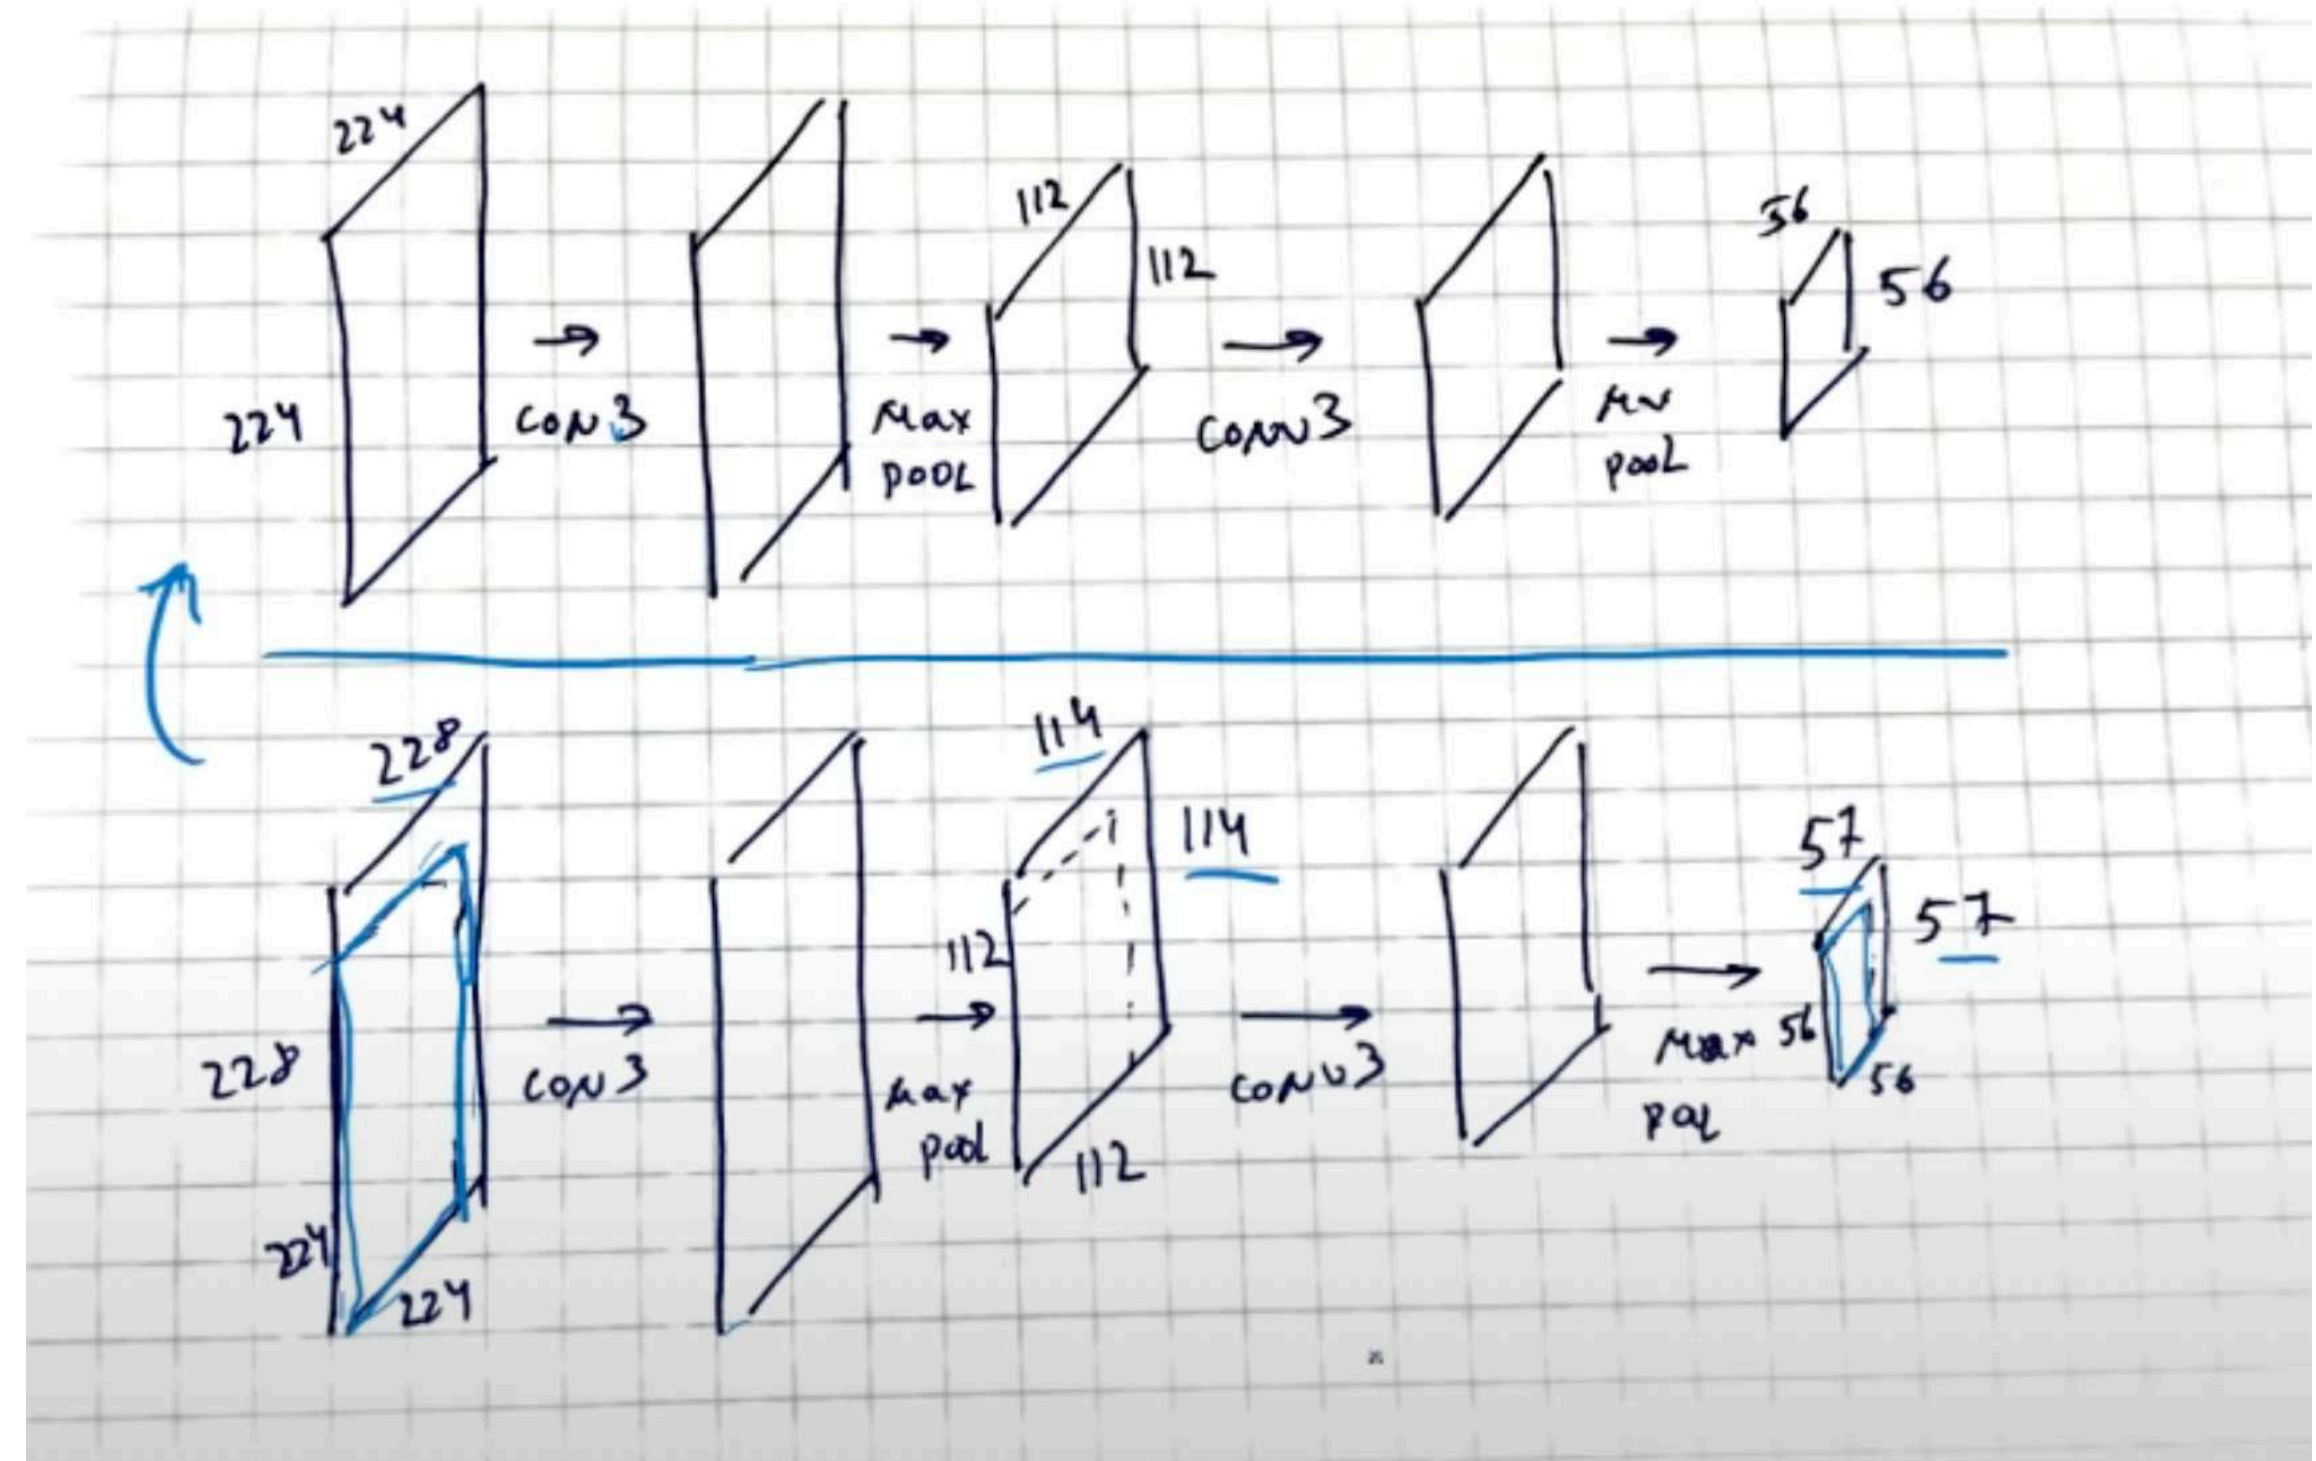 224
224
CON3
Max
POOL
112
112
CONV3
POOL
56
56
228
228
224
224
CON3
Max
pool
114
114
112
112
CONV3
Max
POOL
57
57
56
56